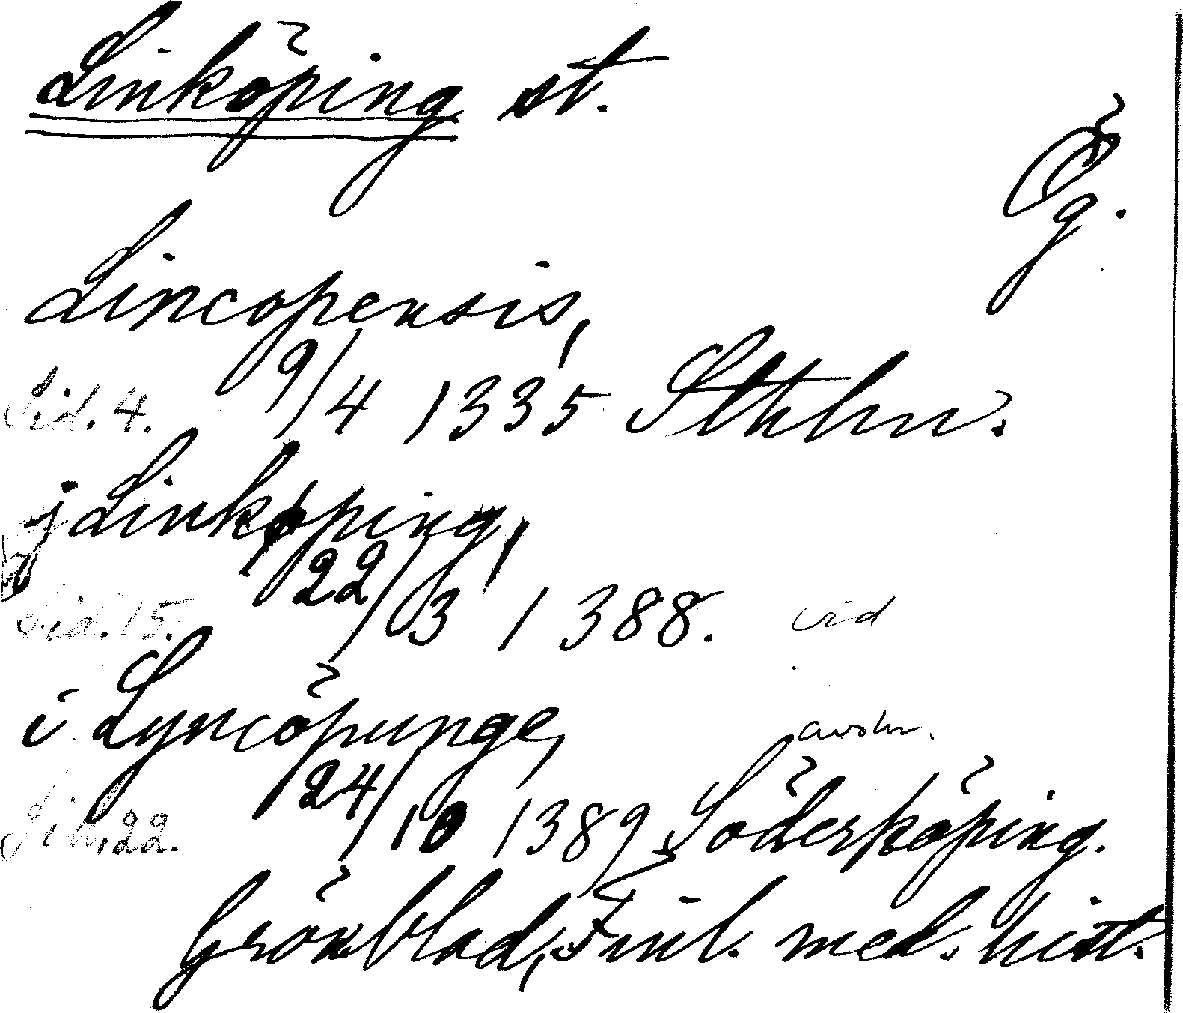 Linköping st.
Ög.
Lincopensis,
Sid. 4. 9/4 1335 Sthlm.
j Linkøping,
Sid. 15. 22/3 1388. vid
i Lyncöpunge,
avskr.
Sid. 22. 24/10 1389 Söderköping.
Grönblad, Finl. med. hist.